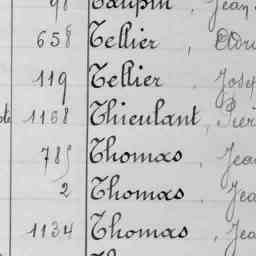 98 Taupin, Jean
658 Tellier,
119 Tellier, Josep
1168 Thieulant, Pier
785 Thomas, Jea
2 Thomas, Jea
1134 Thomas, Jea